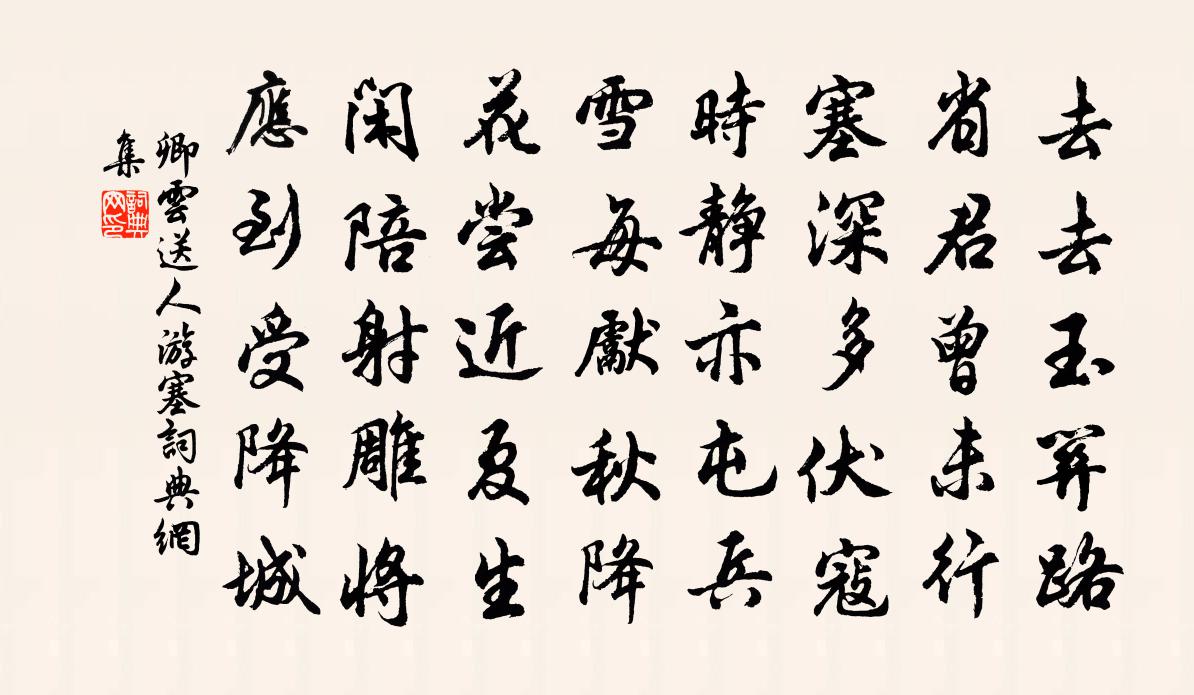 去去玉関路
省君曾未行
塞深多伏寇
時静亦屯兵
雪每獻秋降
花嘗近夏生
閑陪射雕將
應到受降城
卿雲送人游塞詞典網
集
詞典網印